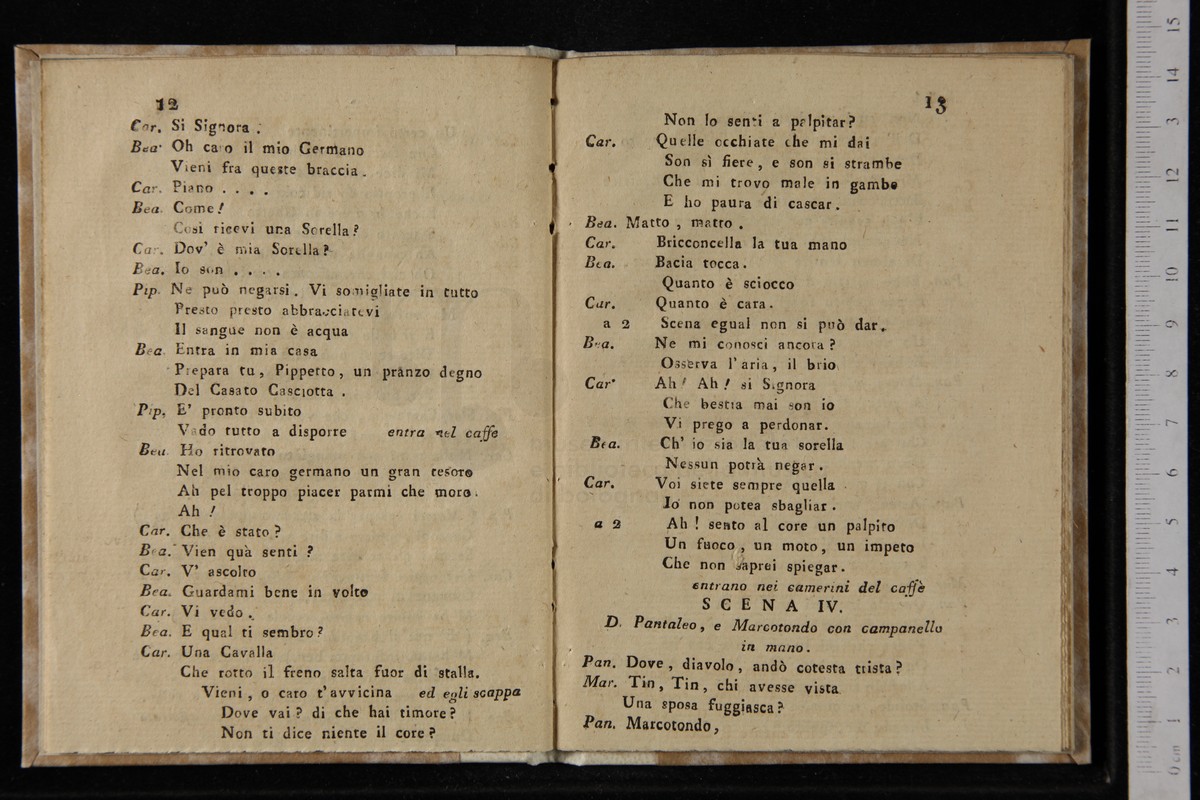 12
Car. Si Signora .
Bea. Oh caro il mio Germano
Vieni fra queste braccia .
Car. Piano . . . .
Bea. Come !
Così ricevi una Sorella ?
Car. Dov' è mia Sorella ?
Bea. Io son . . . .
Pip. Ne può negarsi . Vi somigliate in tutto
Presto presto abbracciatevi
Il sangue non è acqua
Bea. Entra in mia casa
Prepara tu , Pippetto , un pranzo degno
Del Casato Casciotta .
Pip, E' pronto subito
Vado tutto a disporre entra nel caffe
Bea. Ho ritrovato
Nel mio caro germano un gran tesoro
Ah pel troppo piacer parmi che moro .
Ah !
Car. Che è stato ?
Bea. Vien quà senti ?
Car. V' ascolto
Bea. Guardami bene in volto
Car. Vi vedo .
Bea. E qual ti sembro ?
Car. Una Cavalla
Che rotto il freno salta fuor di stalla.
Vieni , o caro t' avvicina ed egli scappa
Dove vai ? di che hai timore ?
Non ti dice niente il core ?
13
Non lo senti a palpitar ?
Car. Quelle occhiate che mi dai
Son sì fiere , e son si strambe
Che mi trovo male in gambe
E ho paura di cascar .
Bea. Matto , matto .
Car. Bricconcella la tua mano
Bea. Bacia tocca .
Quanto è sciocco
Car. Quanto è cara .
a 2 Scena egual non si può dar .
Bea. Ne mi conosci ancora ?
Osserva l' aria , il brio
Car. Ah ! Ah ! si Signora
Che bestia mai son io
Vi prego a perdonar.
Bea. Ch' io sia la tua sorella
Nessun potrà negar .
Car. Voi siete sempre quella
Io non potea sbagliar .
a 2 Ah ! sento al core un palpito
Un fuoco , un moto , un impeto
Che non saprei spiegar .
entrano nei camerini del caffè
SCENA IV.
D. Pantaleo , e Marcotondo con campanello
in mano .
Pan. Dove , diavolo , andò cotesta trista ?
Mar. Tin , Tin , chi avesse vista
Una sposa fuggiasca ?
Pan. Marcotondo ,
0 cm 1 2 3 4 5 6 7 8 9 10 11 12 13 14 15